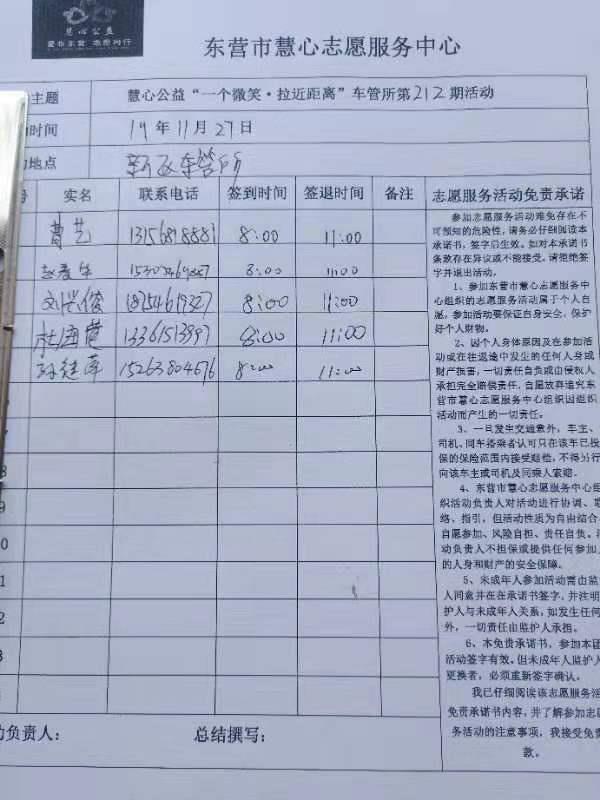 慧心公益
爱在东营 志愿同行
东营市慧心志愿服务中心
主题 慧心公益“一个微笑·拉近距离”车管所第212期活动
时间 19年11月27日
地点 新区车管所
号 实名 联系电话 签到时间 签退时间 备注 志愿服务活动免责承诺
曹艺 13156818881 8:00 11:00
8:00 11:00
8:00 11:00
杜海霞 8:00 11:00
15263804676 8:00 11:00
8
9
0
1
2
3
参加志愿服务活动难免存在不
可预知的危险性，请务必仔细阅读本
承诺书，签字后生效。如对本承诺书
条款存在异议或不能接受，请拒绝签
字并退出活动。
1、参加东营市慧心志愿服务中
心组织的志愿服务活动属于个人自
愿，参加活动要保证自身安全，保护
好个人财物。
2、因个人身体原因及在参加活
动或在往返途中发生的任何人身或
财产损害，一切责任自负或由侵权人
承担完全赔偿责任，自愿放弃追究东
营市慧心志愿服务中心组织因组织
活动而产生的一切责任。
3、一旦发生交通意外，车主、
司机、同车搭乘者认可只在该车已投
保的保险范围内接受赔偿，不得另行
向该车主或司机及同乘人索赔。
4、东营市慧心志愿服务中心组
织活动负责人对活动进行协调、联
络、指引，但活动性质为自由结合、
自愿参加、风险自担、责任自负。活
动负责人不担保或提供任何参加人
的人身和财产的安全保障。
5、未成年人参加活动需由监
人同意并在在承诺书签字，并注明
护人与未成年人关系，如发生任何
外，一切责任由监护人承担。
6、本免责承诺书，参加本团
活动签字有效。但未成年人监护人
更换者，必须重新签字确认。
我已仔细阅读该志愿服务活
免责承诺书内容，并了解参加志愿
务活动的注意事项，我接受免责
款。
动负责人： 总结撰写：